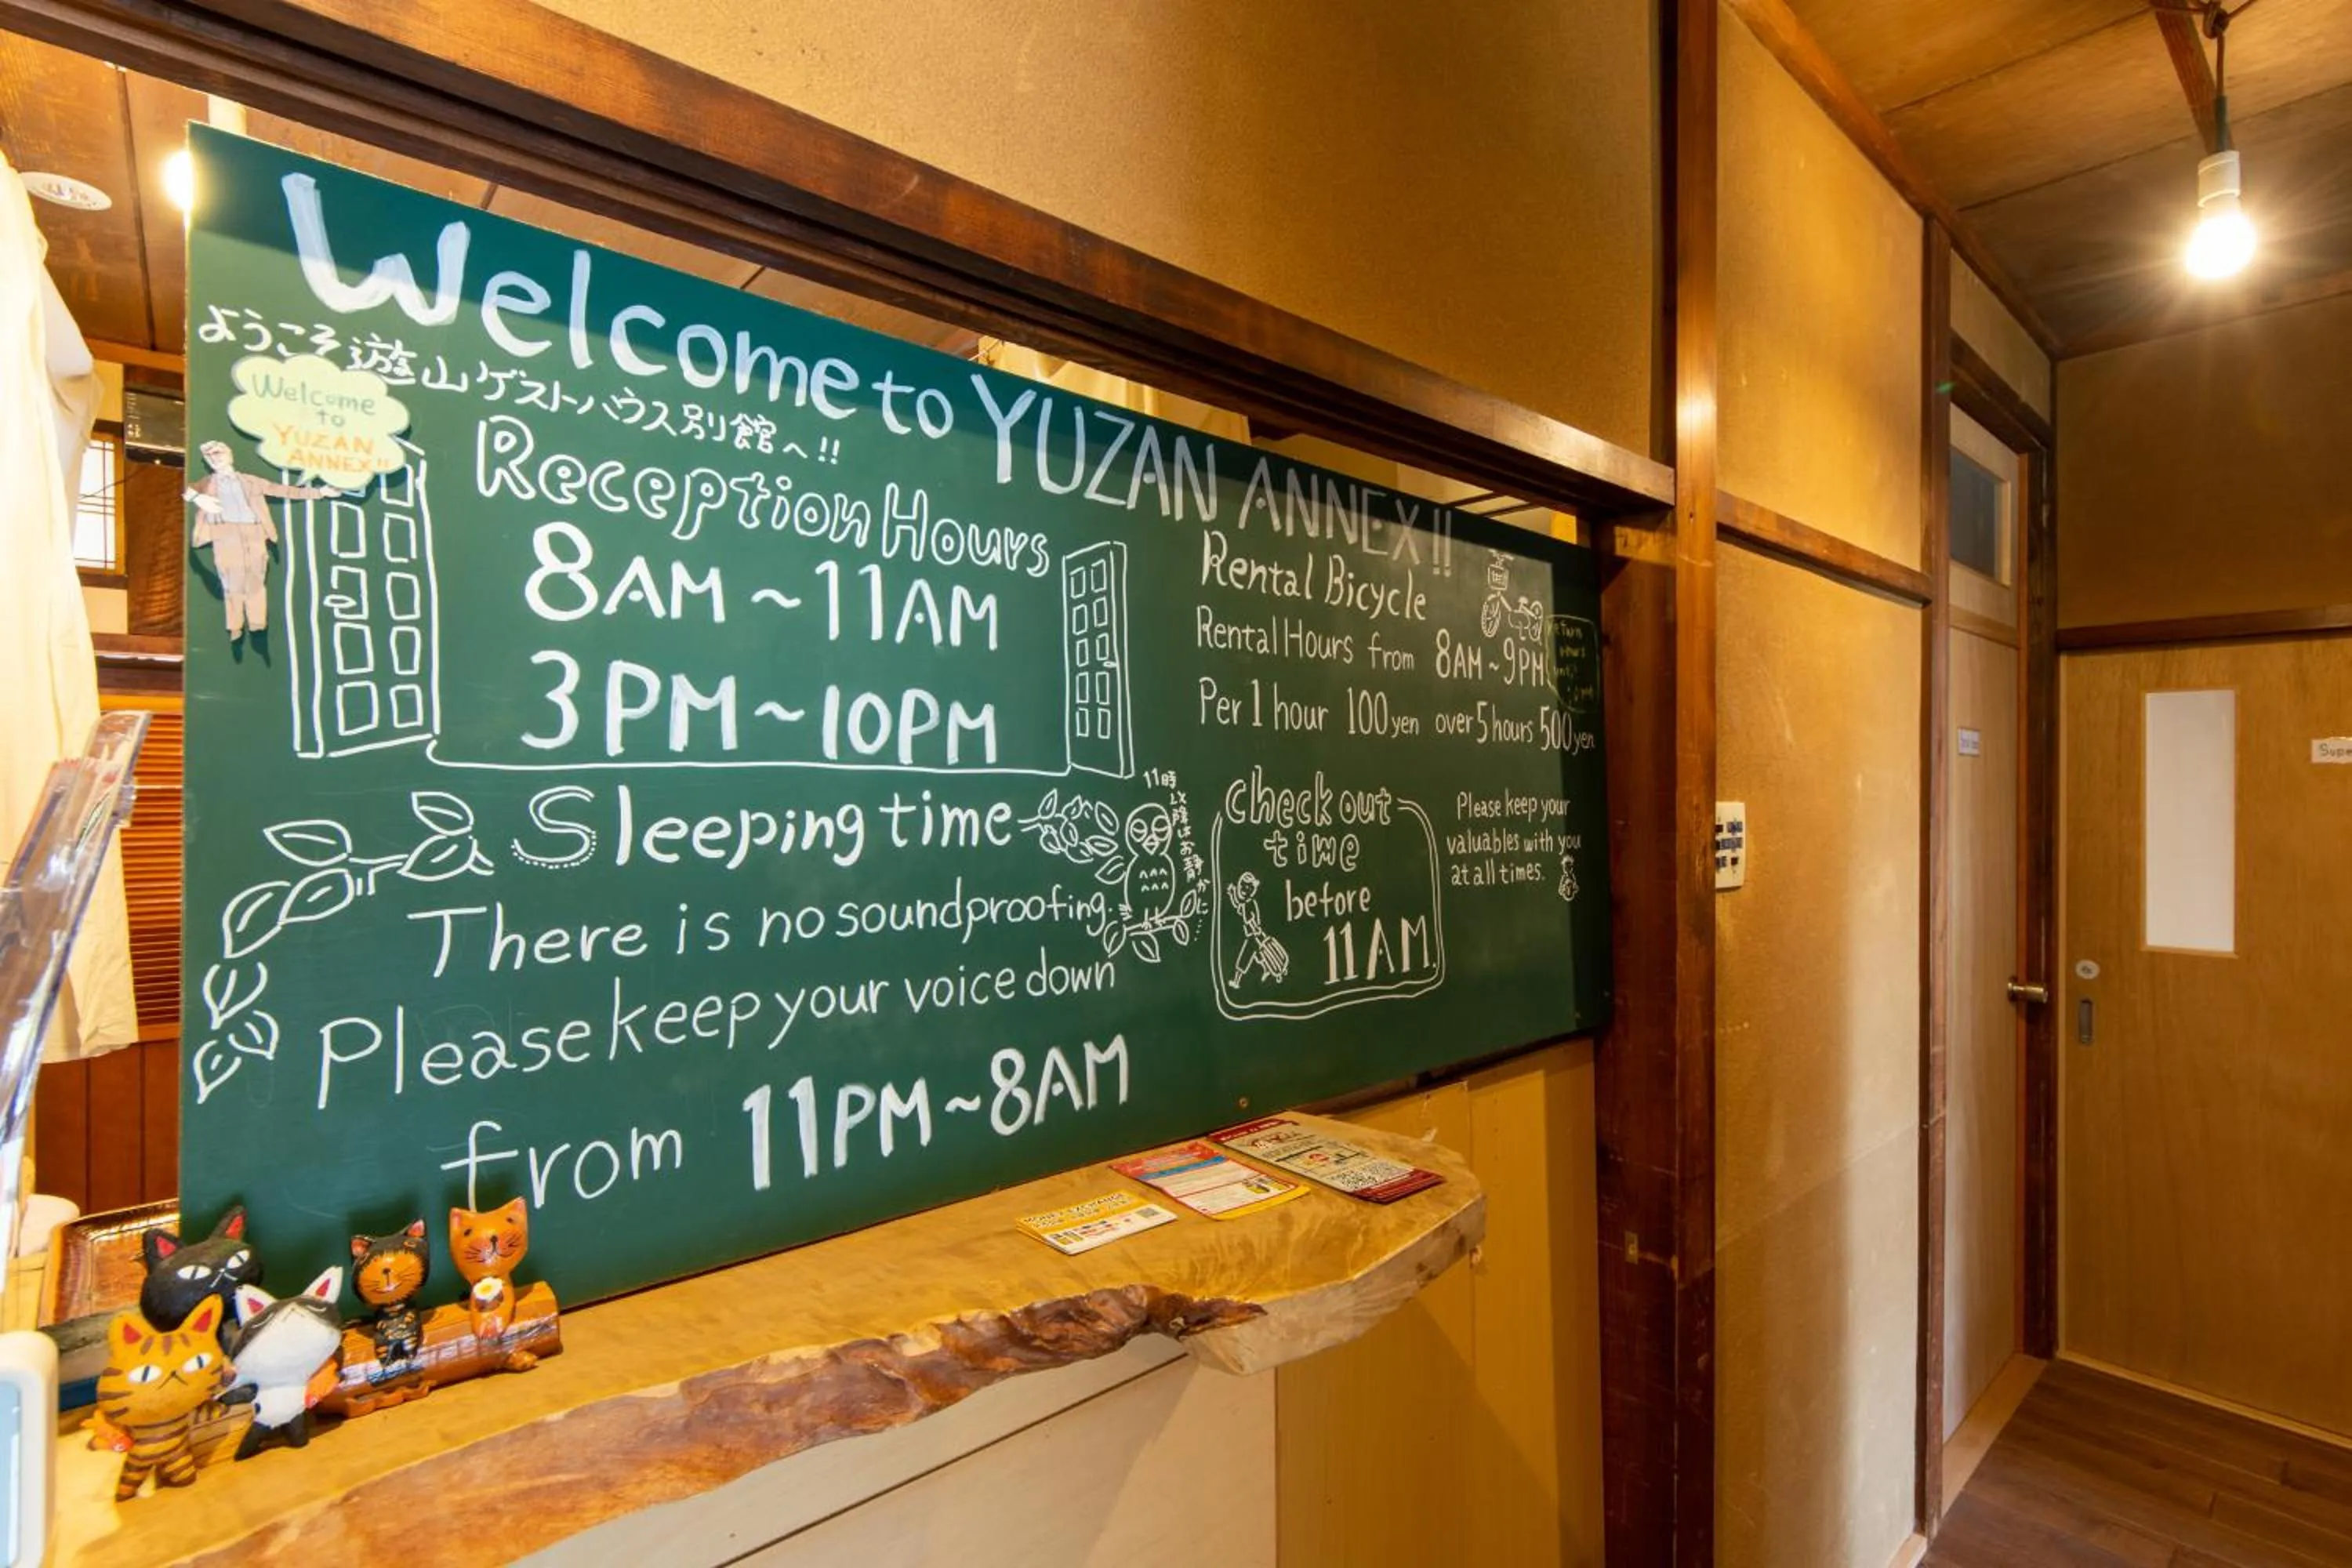 Welcome to YUZAN ANNEX!!
ようこそ遊山ゲストハウス別館へ!!
Welcome
to
YUZAN
ANNEX!!
Reception Hours
8AM~11AM
3PM~10PM
Sleeping time
11時以降はお静かに…
There is no soundproofing.
Please keep your voice down
from 11PM~8AM
Rental Bicycle
Rental Hours from 8AM~9PM
Per 1 hour 100yen over 5 hours 500yen
Check out
time
before
11AM.
Please keep your
valuables with you
at all times.